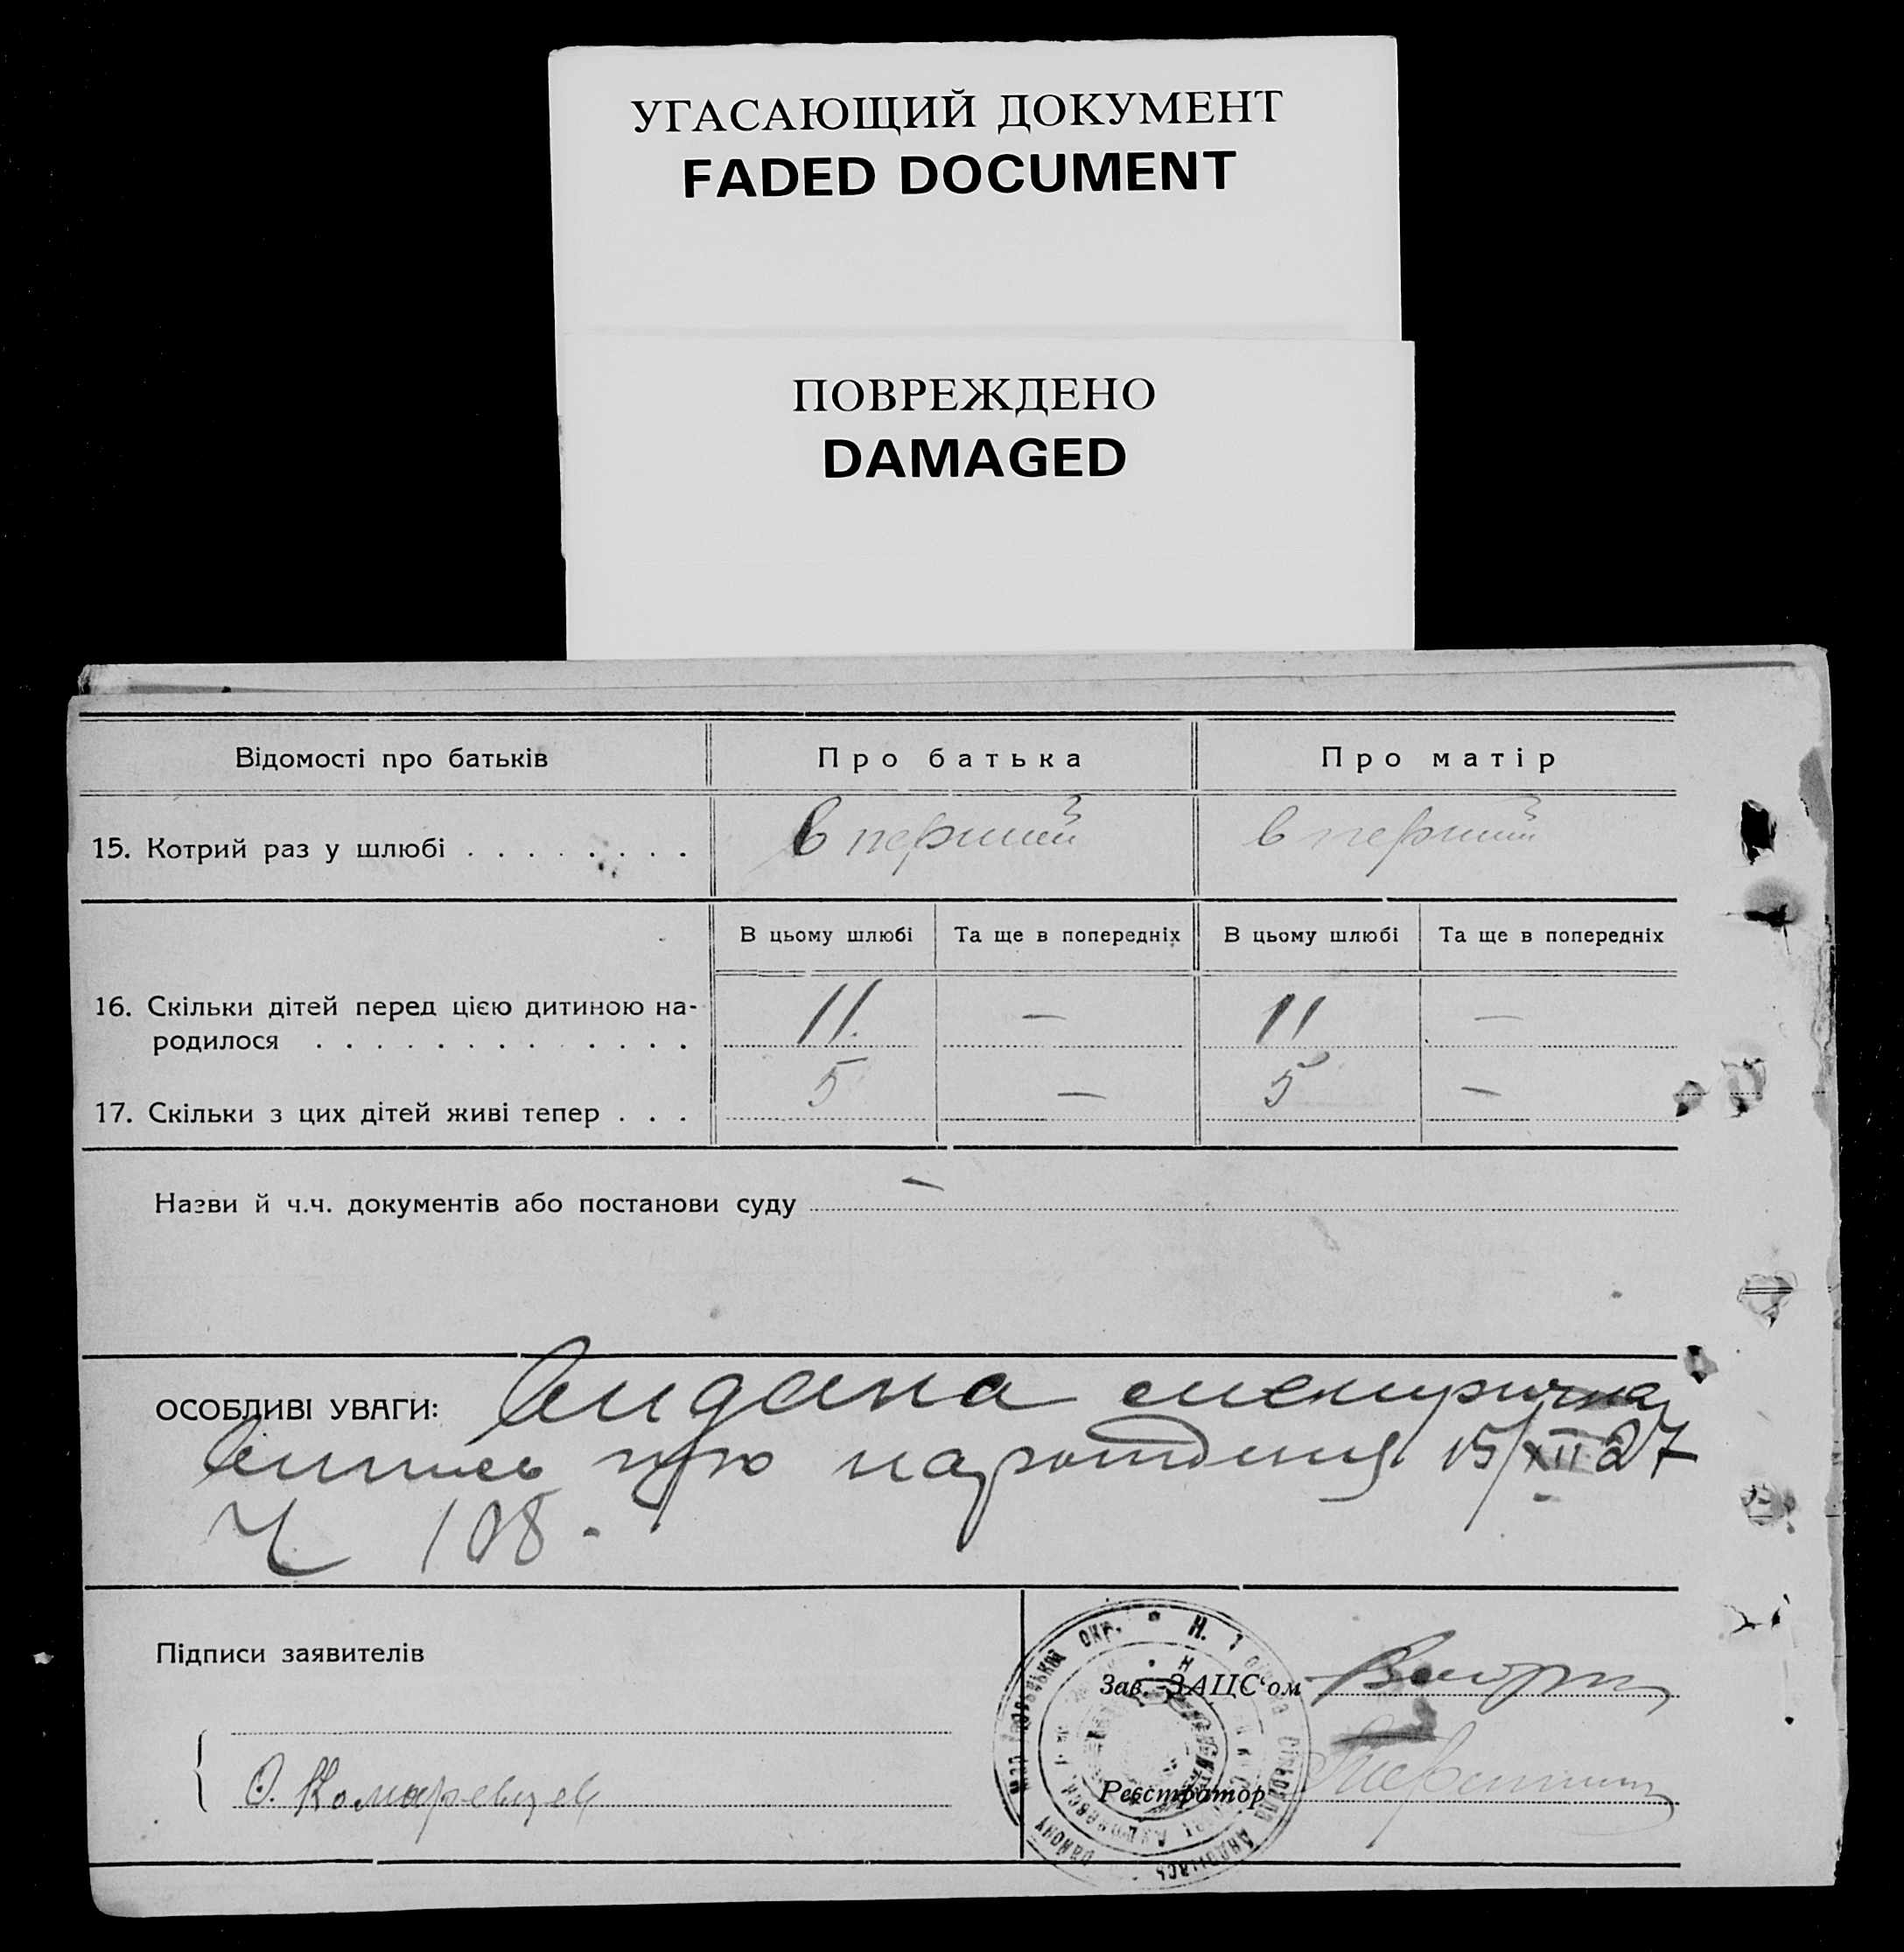 УГАСАЮЩИЙ ДОКУМЕНТ
FADED DOCUMENT
ПОВРЕЖДЕНО
DAMAGED
Відомості про батьків
Про батька
Про матір
15. Котрий раз у шлюбі . . . . . . . .
в перший
в перший
В цьому шлюбі
Та ще в попередніх
В цьому шлюбі
Та ще в попередніх
16. Скільки дітей перед цією дитиною на-
родилося . . . . . . . . . . . . .
11.
—
11
—
17. Скільки з цих дітей живі тепер . . .
5
—
5
—
Назви й ч.ч. документів або постанови суду —
ОСОБЛИВІ УВАГИ: Видана
випись про народження 15/XII 27
Ч 108.
Підписи заявителів
Зав. ЗАЦС'ом
О. Комаревцев
Реєстратор